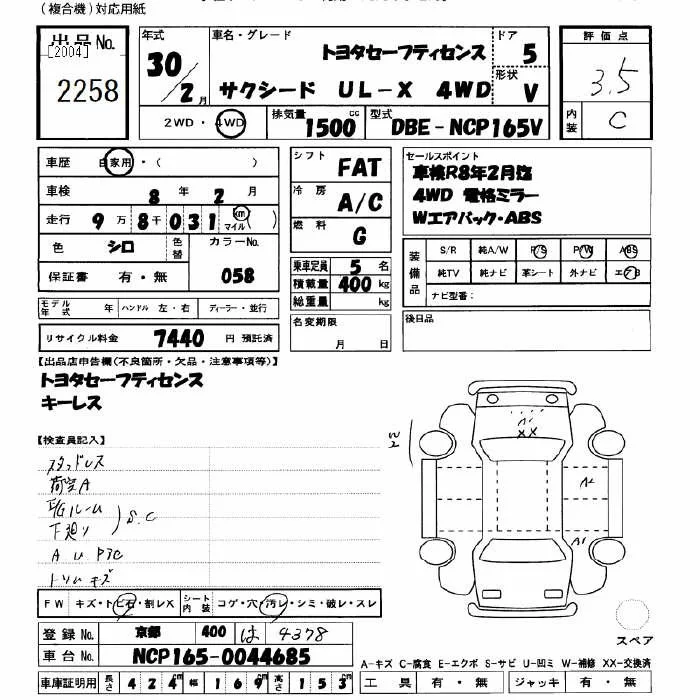 (複合機)対応用紙
出品No.
[2004]
2258
年式
30/2月
車名・グレード
トヨタセーフティセンス
サクシード UL-X 4WD
ドア
5
形状
V
評価点
3.5
内装
C
2WD・4WD
排気量
1500cc
型式
DBE-NCP165V
車歴 自家用・( )
車検 8年2月
走行 9万8千031km マイル( )
色 シロ 色替 カラーNo.
058
保証書 有・無
モデル年式 年 ハンドル 左・右 ディーラー・並行
リサイクル料金 7440円 預託済
シフト FAT
冷房 A/C
燃料 G
乗車定員 5名
積載量 400kg
総重量 kg
名変期限
月 日
セールスポイント
車検R8年2月迄
4WD 電格ミラー
Wエアバック・ABS
装備品
S/R 純A/W P/S P/W ABS
純TV 純ナビ 革シート 外ナビ エアB
ナビ型番:
後日品
【出品店申告欄(不良箇所・欠品・注意事項等)】
トヨタセーフティセンス
キーレス
【検査員記入】
スタッドレス
荷室A
E/Gルーム
下廻り
S.C
A U P3C
トリムキズ
W2
A
XX
A2
A1
FW キズ・トビ石・割レX シート内装 コゲ・穴・汚レ・シミ・破レ・スレ
登録No. 京都 400 は 4378
車台No. NCP165-0044685
車庫証明用 長さ 424cm 幅 169cm 高さ 153cm
スペア
A-キズ C-腐食 E-エクボ S-サビ U-凹ミ W-補修 XX-交換済
工具 有・無 ジャッキ 有・無